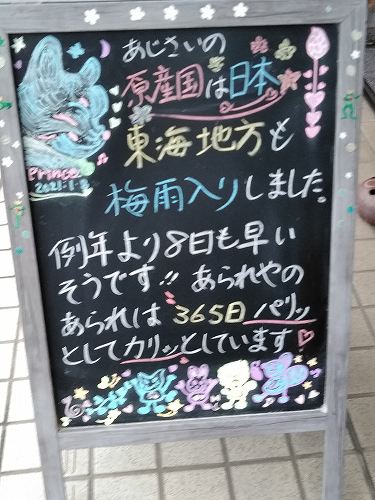 あじさいの
原産国は日本
東海地方も
梅雨入りしました。
例年より8日も早い
そうです!! あられやの
あられは365日パリッ
としてカリッとしています♡
Prince